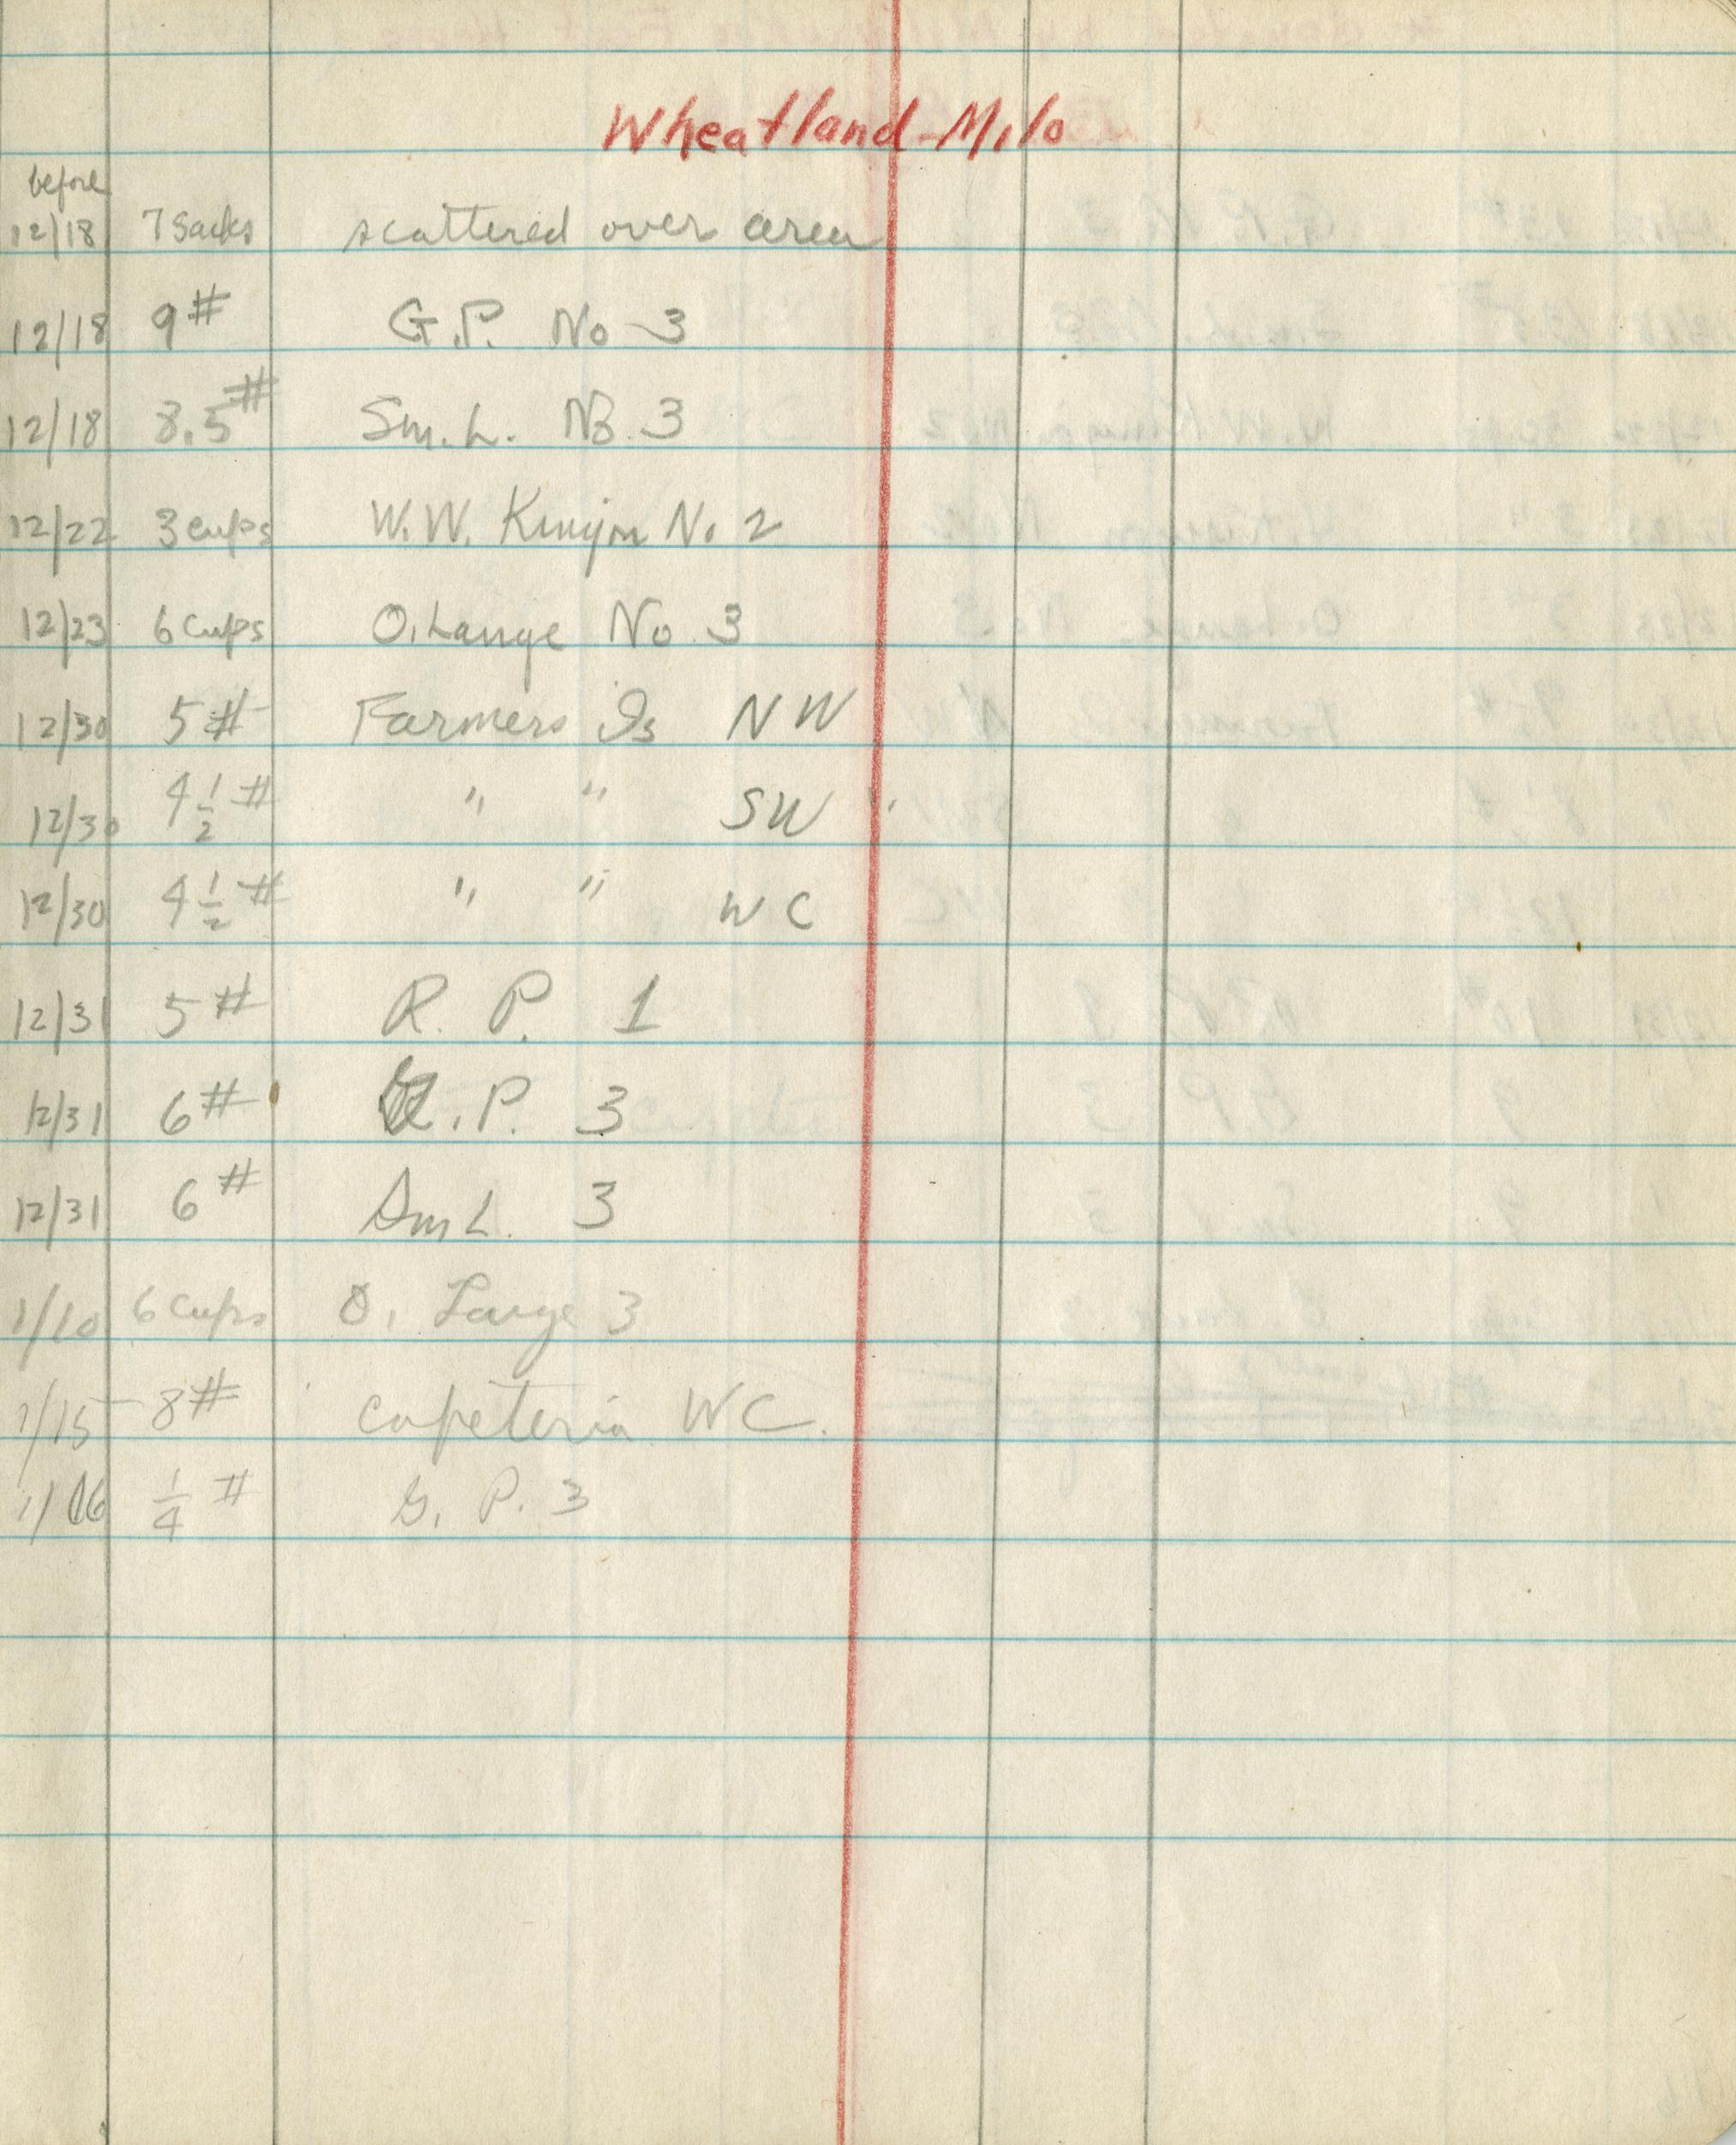 Wheatland-Milo
before
12/18 7 Sacks scattered over area
12/18 9# G.P. No 3
12/18 8.5# Sm. L. No. 3
12/22 3 cups W.W. Kinyon No 2
12/23 6 cups O. Lange No. 3
12/30 5# Farmers Is NW
12/30 4 1/2# " " SW
12/30 4 1/2# " " WC
12/31 5# R. P. 1
12/31 6# .P. 3
12/31 6# Sm L. 3
1/10 6 cups O. Lange 3
1/15 8# cafeteria WC.
1/16 1/4# G. P. 3